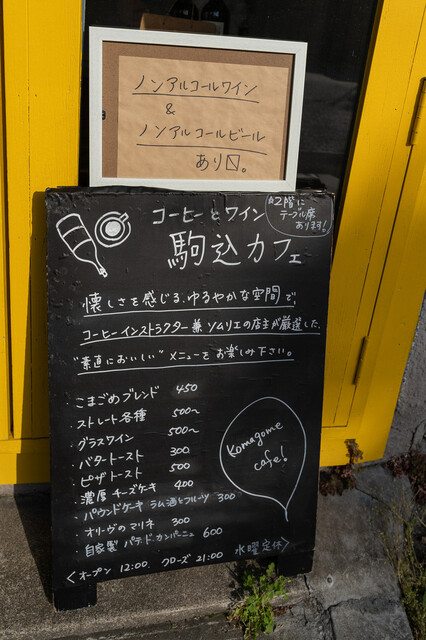 ノンアルコールワイン
&
ノンアルコールビール
あり〼。
コーヒーとワイン
駒込カフェ
2階に
テーブル席
あります!
懐しさを感じる、ゆるやかな空間で、
コーヒーインストラクター兼ソムリエの店主が厳選した、
"素直においしい" メニューをお楽しみ下さい。
・こまごめブレンド 450
・ストレート各種 500〜
・グラスワイン 500〜
・バタートースト 300
・ピザトースト 500
・濃厚チーズケーキ 400
・パウンドケーキ ラム酒とフルーツ 300
・オリーヴのマリネ 300
・自家製 パテ・ド・カンパーニュ 600
Komagome
cafe!
<オープン 12:00 クローズ 21:00 水曜定休>